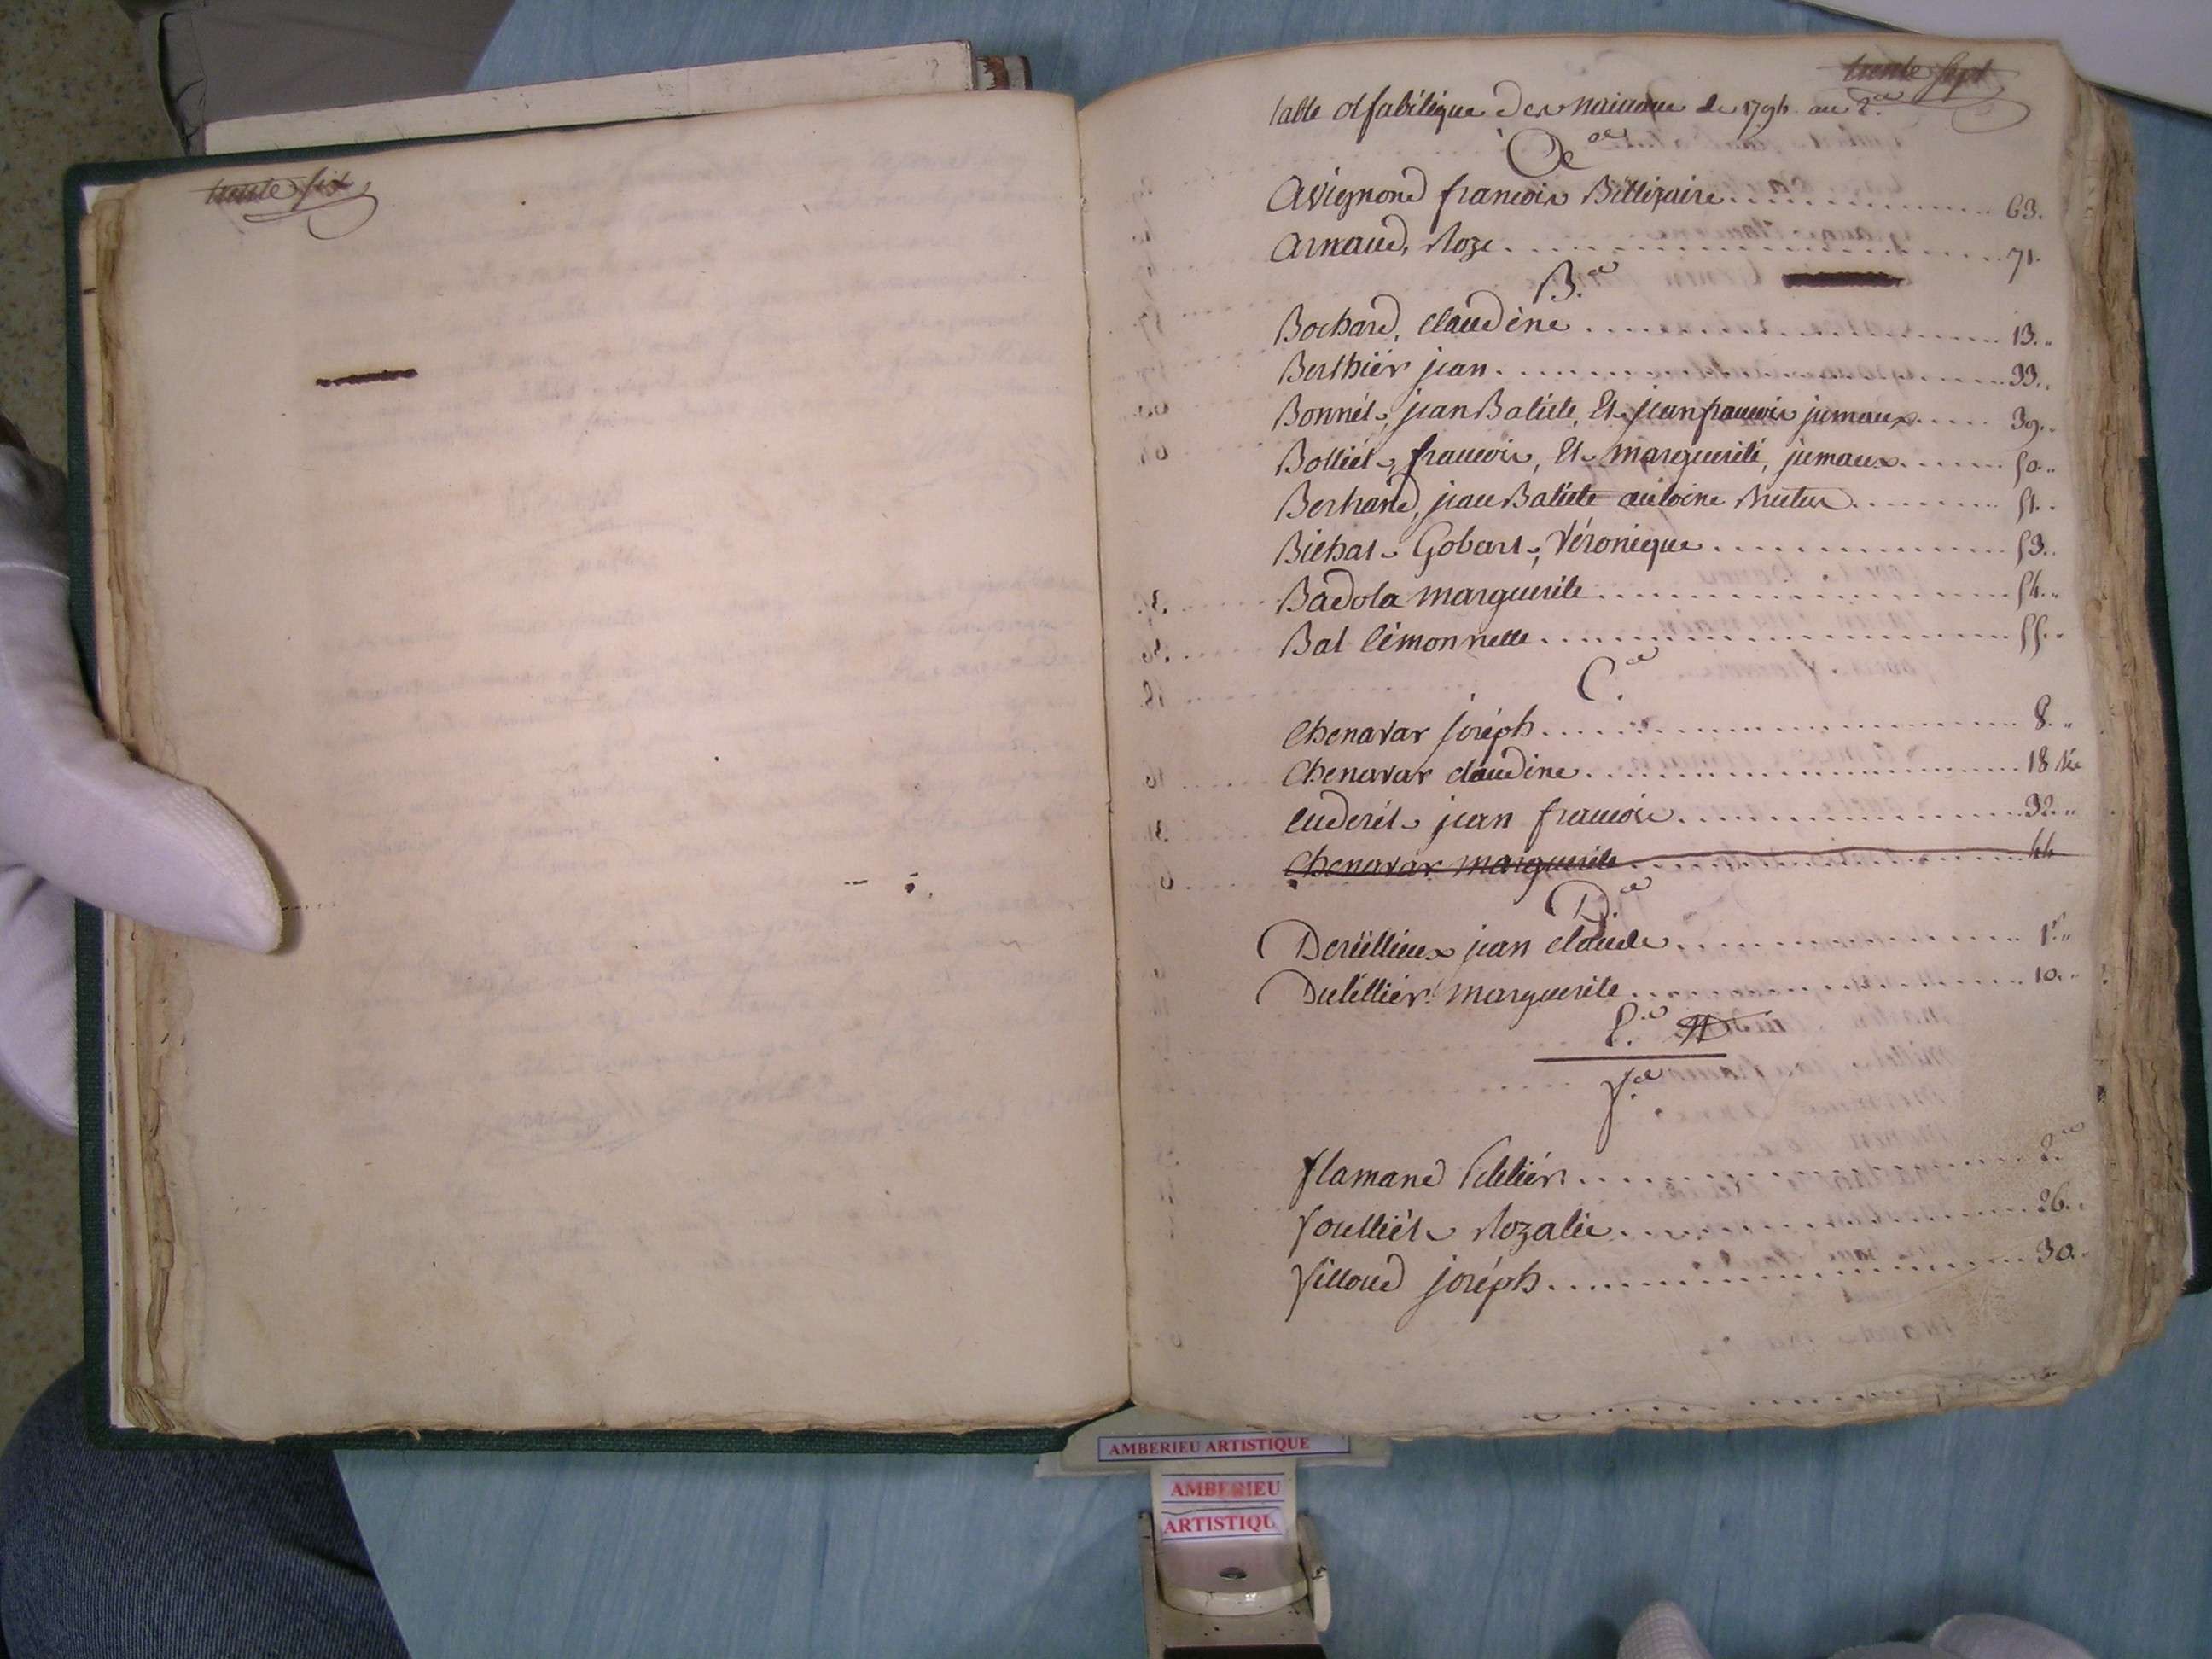 trente six
trente sept
table alfabétique des naissance de 1794. au 2.e
A
Avignond francois Béllizaire 63.
Arnaud, Roze 71.
B.
Bochard, claudène 13.
Berthiér jean 33.
Bonnét, jean Batiste, Et jean francois jumaux 39.
Bolliét, francois, Et marguerite, jumaux 50.
Bertrand, jean Batiste antoine Brutus 51.
Bichat Gobart, Véronique 53.
Badola marguerite 54.
Bal Simonnette 55.
C.
Chenavar joséph 8.
Chenavar claudine 18 bis
Cuderét jean francois 32.
Chenavar marguerite 44
D.
Deruëllieux jean claude 1er
Dutéllier marguerite 10.
E.
F.
flamand 2.
foulliét Rozalie 26.
fílloud joséph 30.
AMBERIEU ARTISTIQUE
AMBERIEU
ARTISTIQU